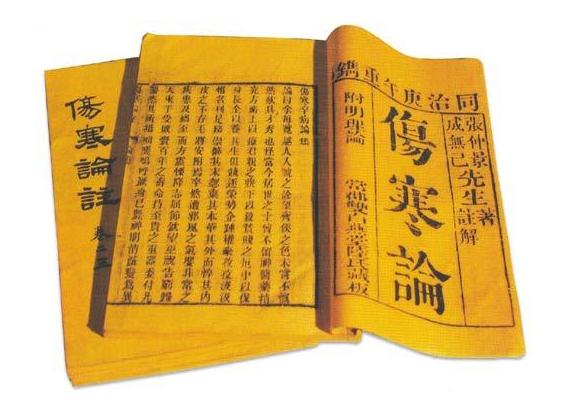 同治庚午重鐫
張仲景先生著
成無己註解
傷寒論
附明理論
常郡雙白燕堂陸氏藏板
傷寒卒病論集
論曰余每覽越人入虢之診望齊侯之色未嘗不慨
然歎其才秀也怪當今居世之士曾不留神醫藥精
究方術上以療君親之疾下以救貧賤之厄中以保
身長全以養其生但競逐榮勢企踵權豪孜孜汲汲
惟名利是務崇飾其末忽棄其本華其外而悴其內
皮之不存毛將安附焉卒然遭邪風之氣嬰非常之
疾患及禍至而方震慄降志屈節欽望巫祝告窮歸
天束手受敗賫百年之壽命持至貴之重器委付凡
醫恣其所措咄嗟嗚呼厥身已斃神明消滅變為異
傷寒論註
卷之三